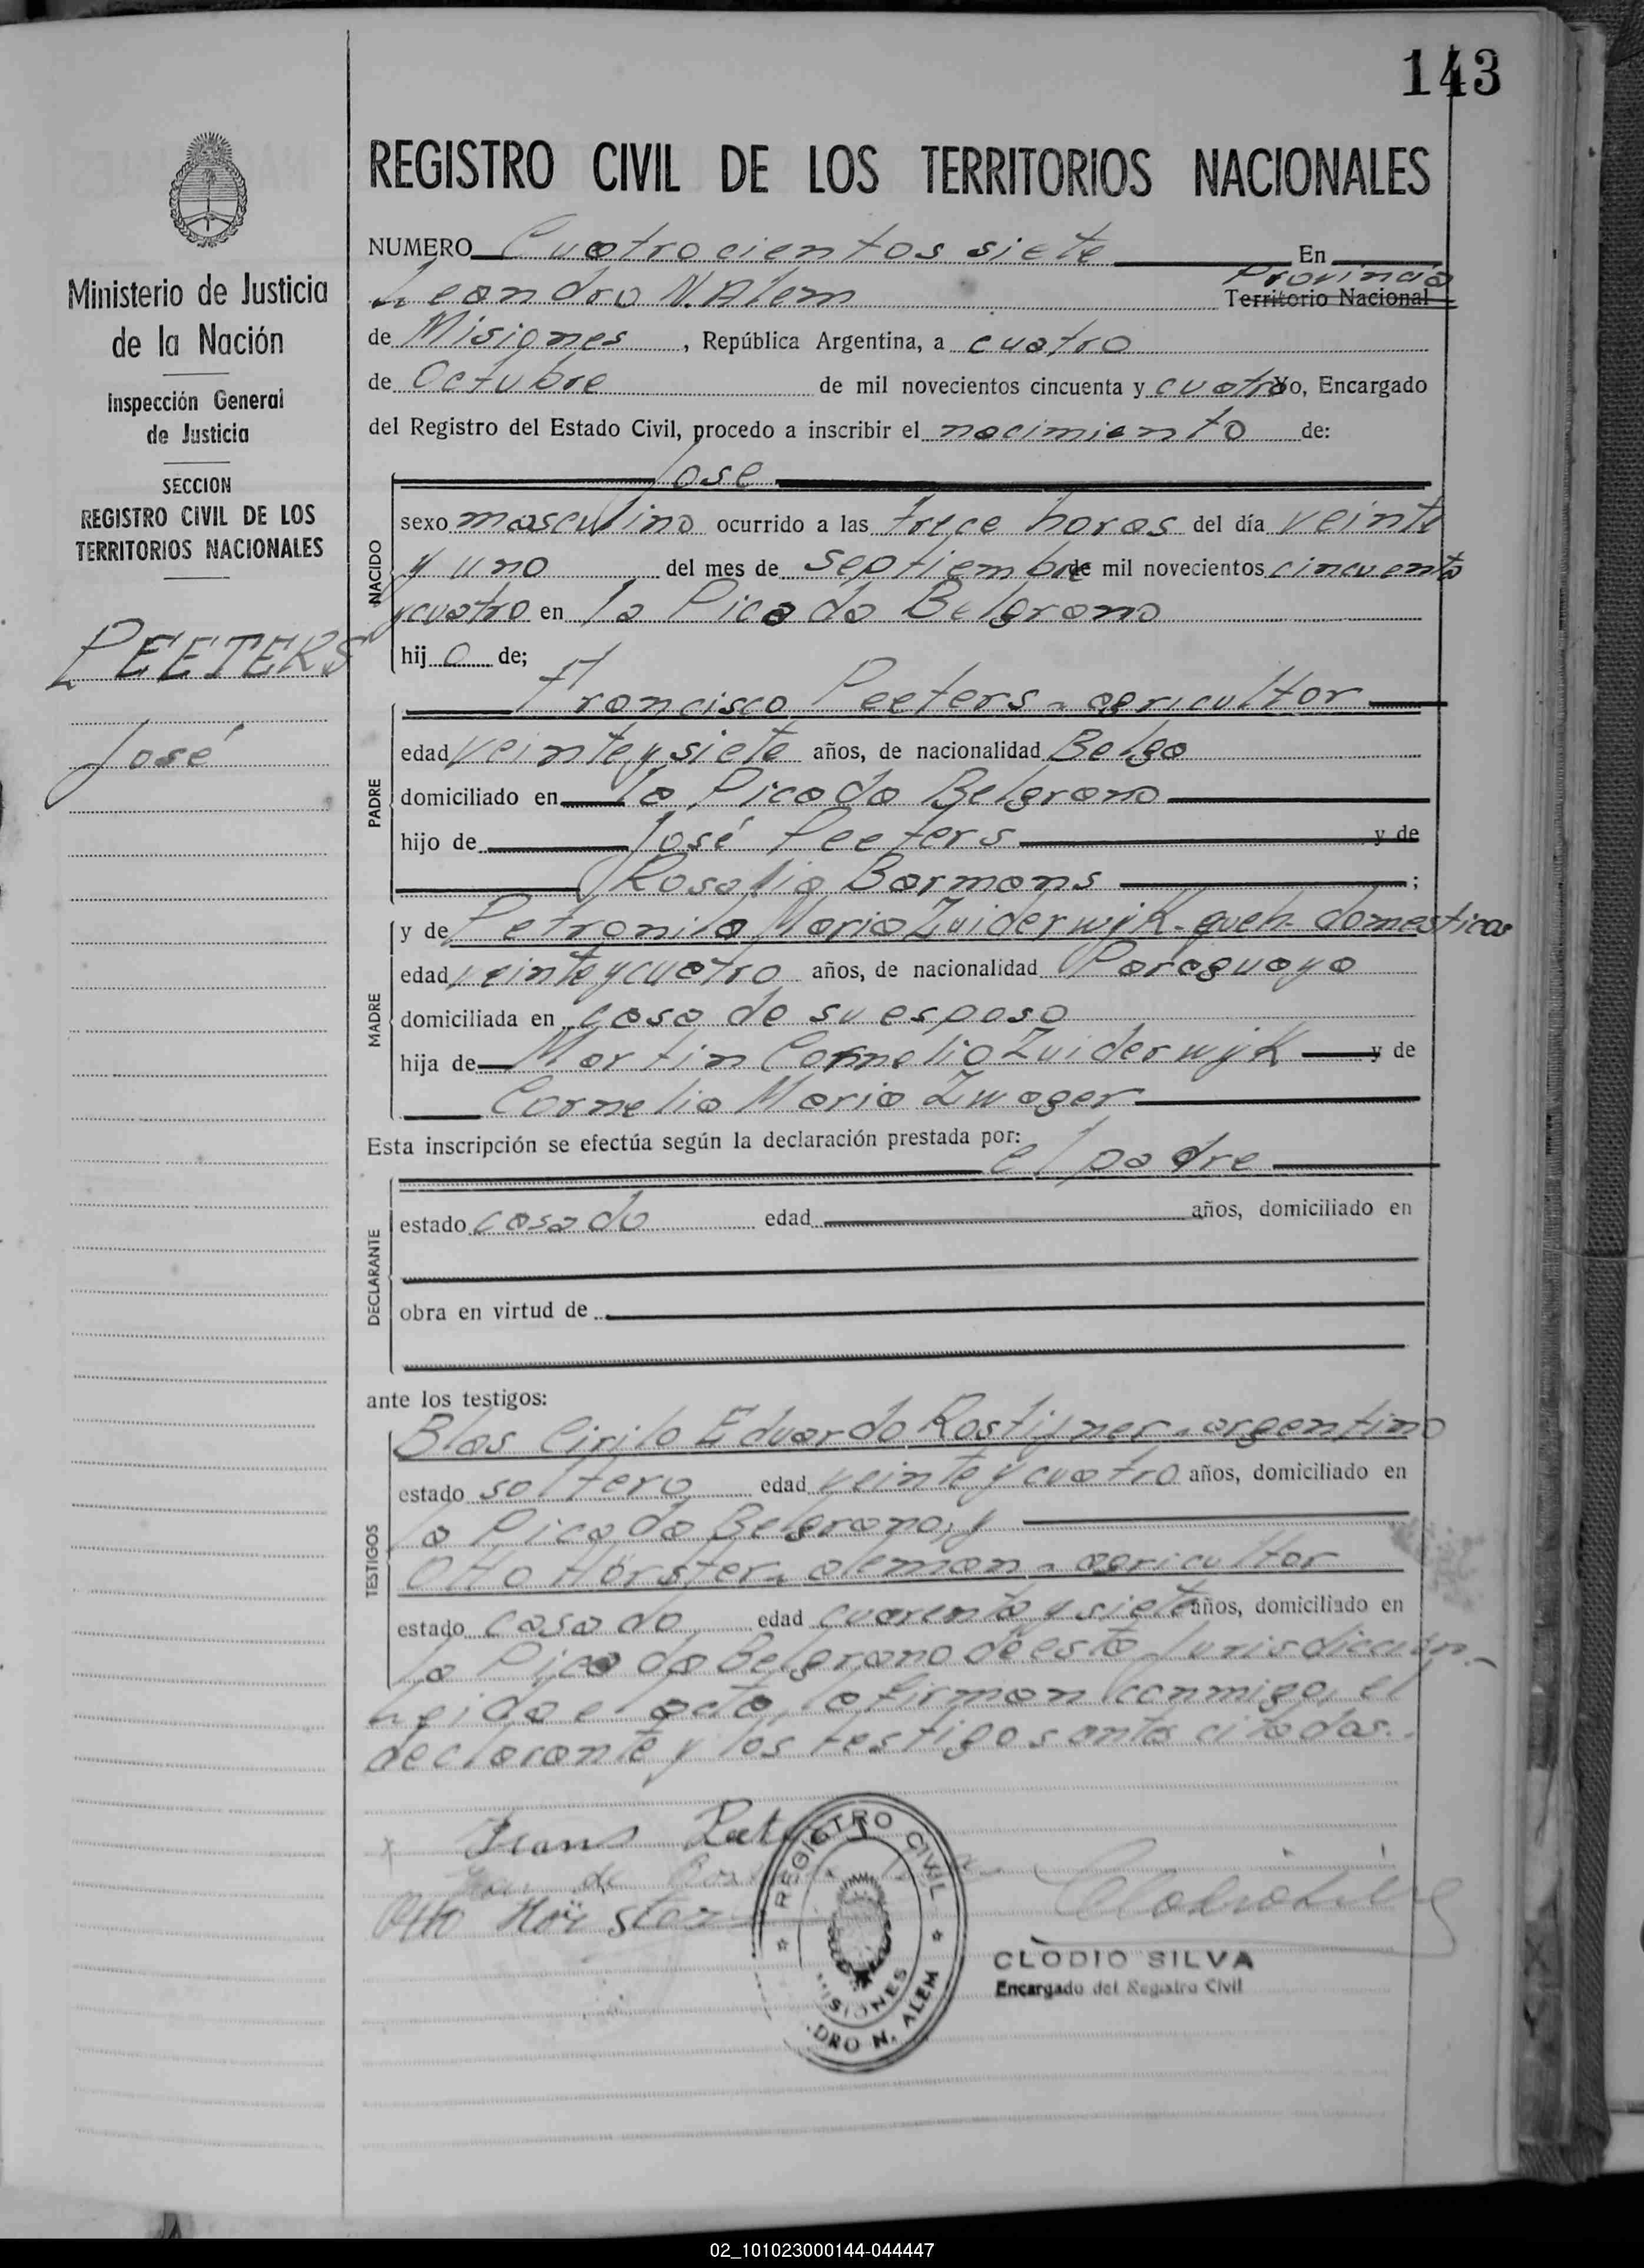 143
REGISTRO CIVIL DE LOS TERRITORIOS NACIONALES
Ministerio de Justicia
de la Nación
Inspección General
de Justicia
SECCION
REGISTRO CIVIL DE LOS
TERRITORIOS NACIONALES
PEETERS
José
NUMERO Cuatrocientos siete En
Leandro N. Alem Provincia Territorio Nacional
de Misiones, República Argentina, a cuatro
de Octubre de mil novecientos cincuenta y cuatro yo, Encargado
del Registro del Estado Civil, procedo a inscribir el nacimiento de:
NACIDO
José
sexo masculino ocurrido a las trece horas del día veinte
y uno del mes de septiembre de mil novecientos cincuenta
y cuatro en la Picada Belgrano
hij o de;
PADRE
Francisco Peeters - agricultor
edad veinte y siete años, de nacionalidad Belga
domiciliado en la Picada Belgrano
hijo de José Peeters y de
Rosalia Barmans;
MADRE
y de Petronila Maria Zuiderwijk - queh. domesticos
edad veinte y cuatro años, de nacionalidad Paraguaya
domiciliada en casa de su esposo
hija de Martin Cornelio Zuiderwijk y de
Cornelia Maria Zwager
Esta inscripción se efectúa según la declaración prestada por:
el padre
DECLARANTE
estado casado edad años, domiciliado en
obra en virtud de
ante los testigos:
TESTIGOS
Blas Cirilo Eduardo Rostijner - argentino
estado soltero edad veinte y cuatro años, domiciliado en
la Picada Belgrano, y
Otto Hörster - aleman - agricultor
estado casado edad cuarenta y siete años, domiciliado en
la Picada Belgrano de esta Jurisdicción.-
Leida el acta, la firman conmigo, el
declarante y los testigos antes citados.
Frans Peeters
Otto Hörster
REGISTRO CIVIL
MISIONES
DRO N. ALEM
CLODIO SILVA
Encargado del Registro Civil
02_101023000144-044447